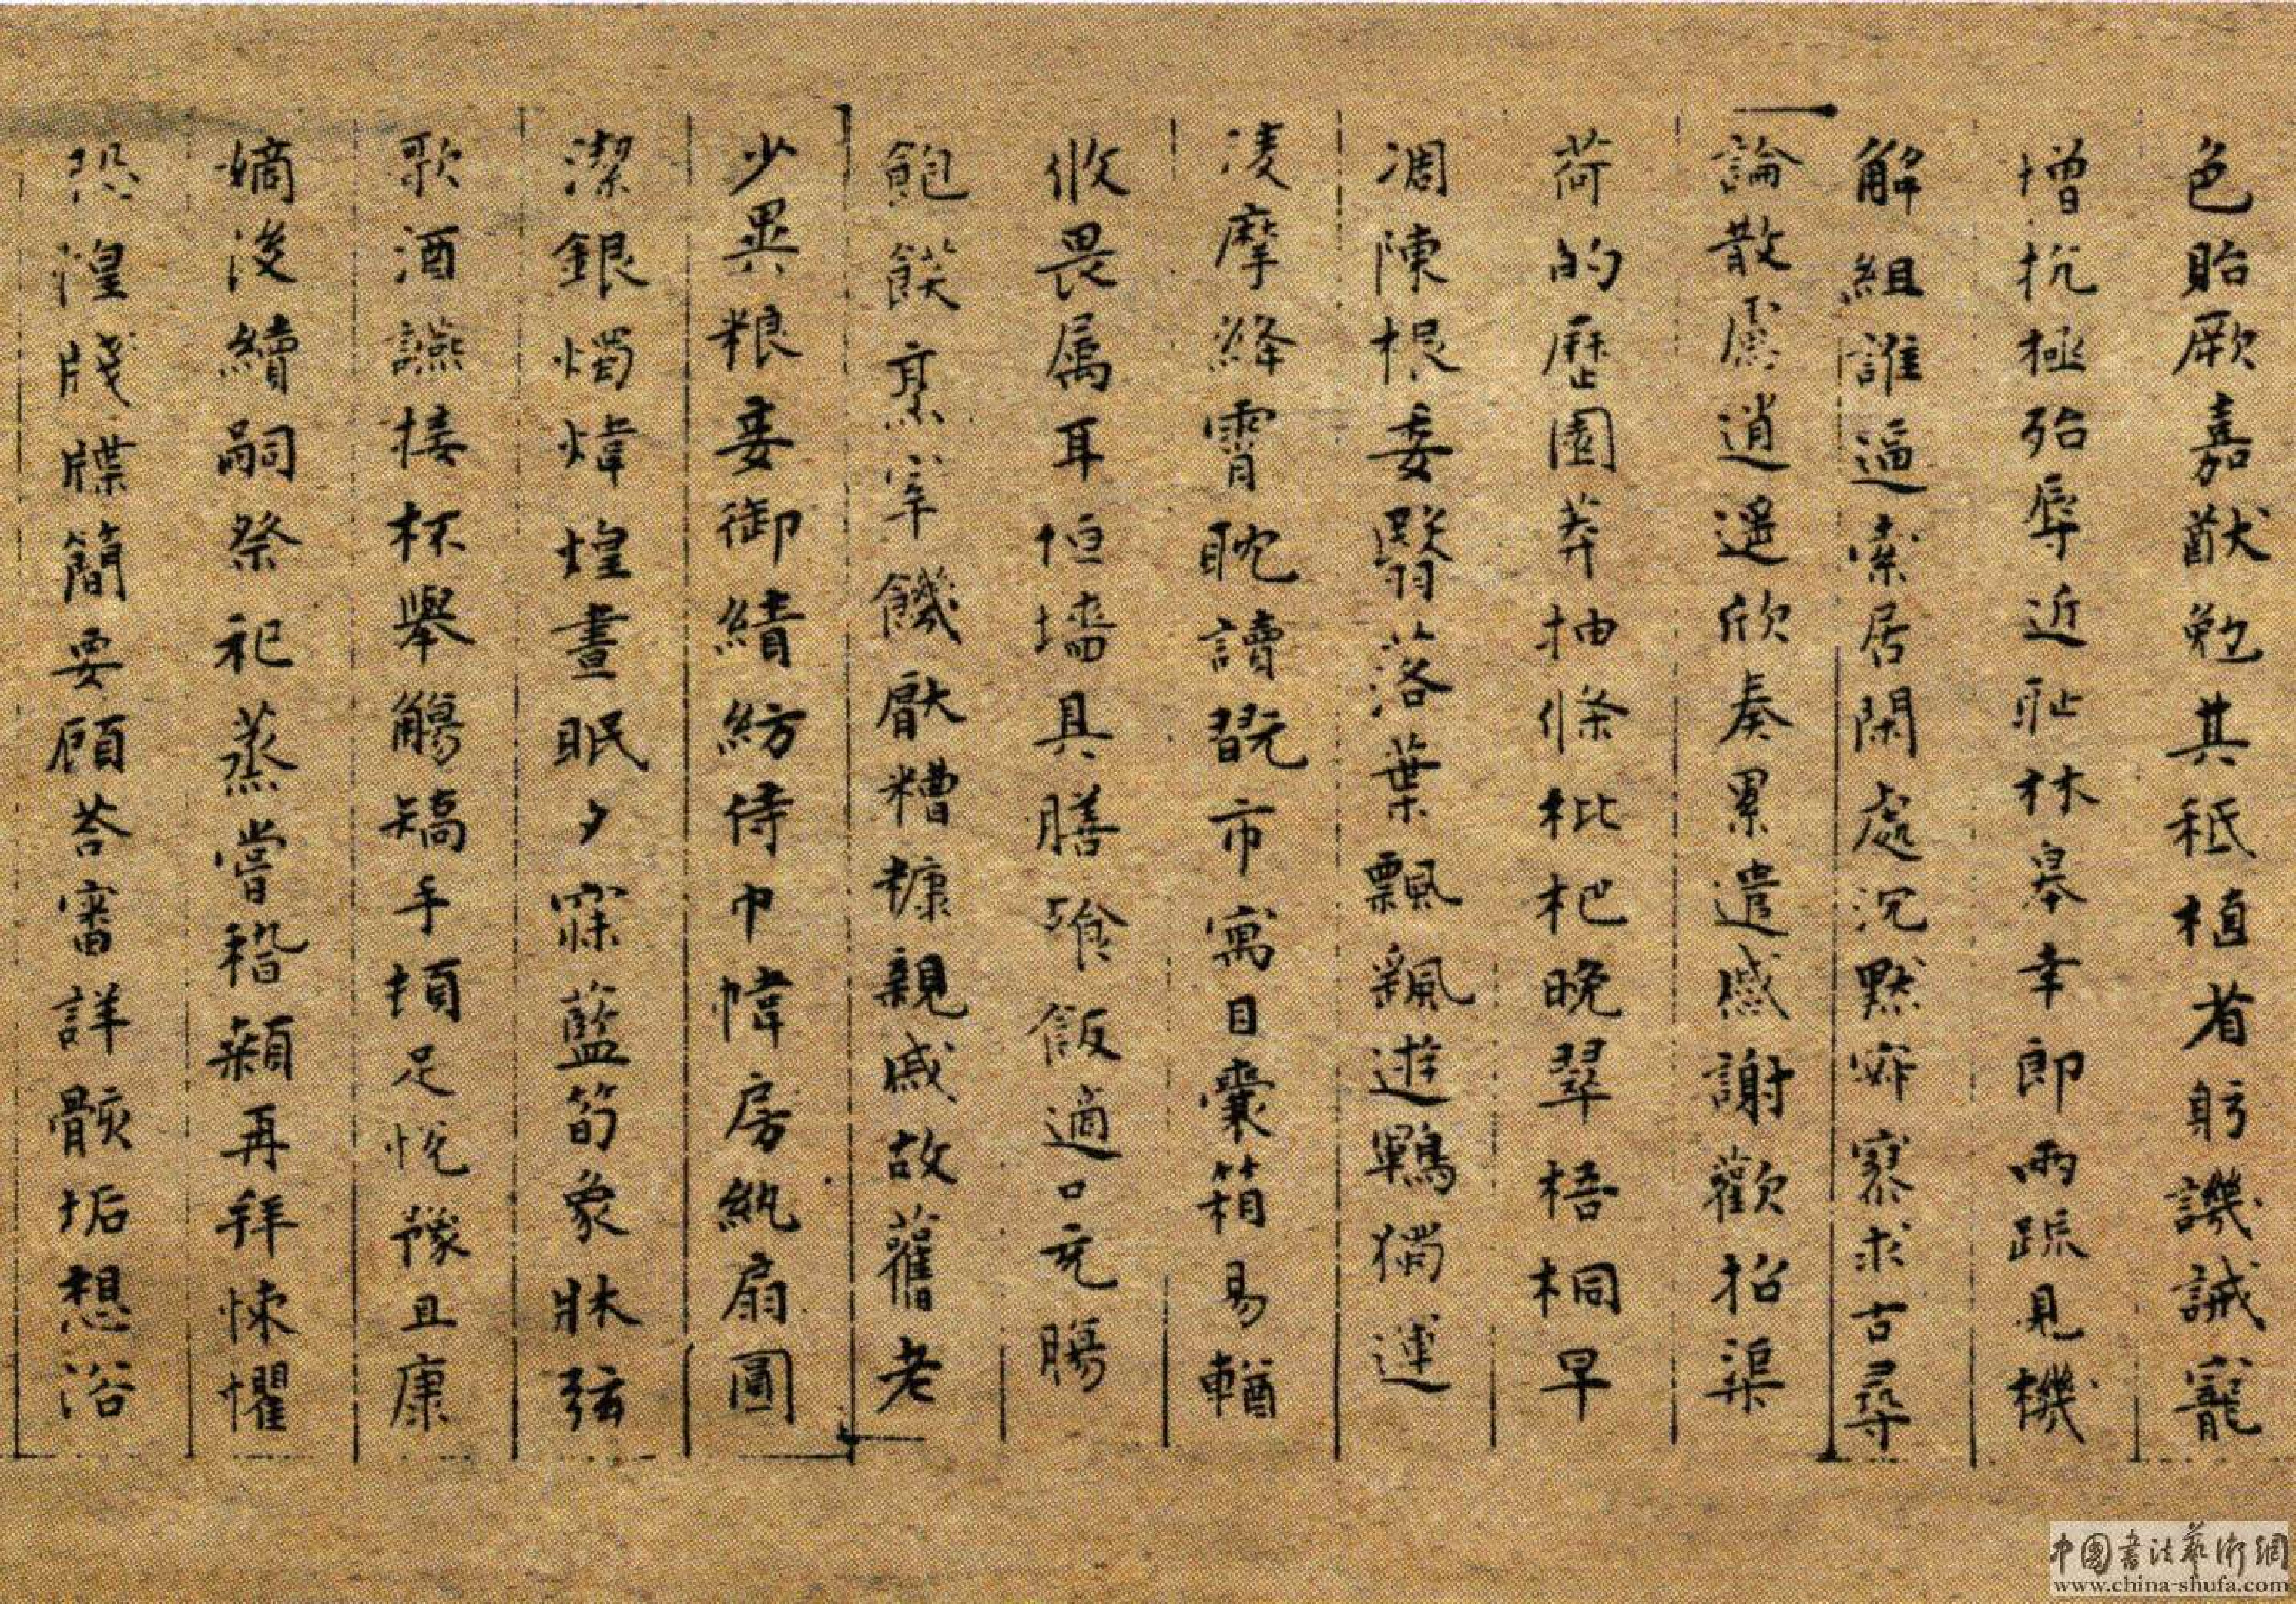 色貽厥嘉猷勉其秖植省躬譏誡寵
增抗極殆辱近耻林皋幸即兩疏見機
解組誰逼索居閑處沉默寂寥求古尋
論散慮逍遥欣奏累遣慼謝歡招渠
荷的歷園莽抽條枇杷晚翠梧桐早
凋陳根委翳落葉飄颻遊鵾獨運
凌摩絳霄耽讀翫市寓目囊箱易輶
攸畏属耳恒墻具膳飡飯適口充腸
飽飫烹宰饑厭糟糠親戚故舊老
少異粮妾御績紡侍巾幃房紈扇圓
潔銀燭煒煌晝眠夕寐藍筍象牀弦
歌酒讌接杯舉觴矯手頓足悅豫且康
嫡後續嗣祭祀蒸嘗稽顙再拜悚懼
恐惶牋牒簡要顧荅審詳骸垢想浴
中國書法藝術網
www.china-shufa.com